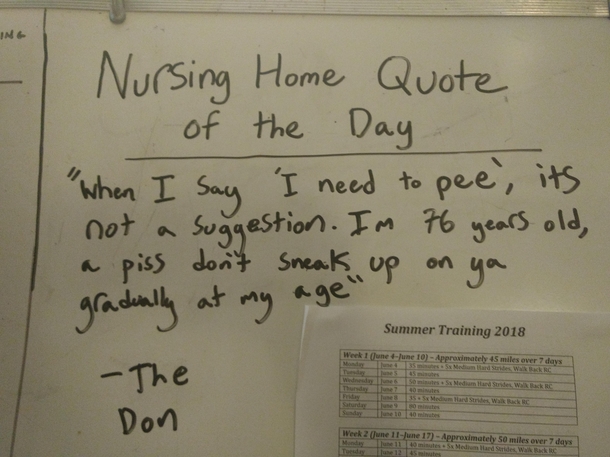 ING
Nursing Home Quote
of the Day
"When I say 'I need to pee', its
not a suggestion. I'm 76 years old,
a piss don't sneak up on ya
gradually at my age"
- The
Don
Summer Training 2018
Week 1 (June 4-June 10) – Approximately 45 miles over 7 days
Monday June 4 35 minutes + 5x Medium Hard Strides, Walk Back RC
Tuesday June 5 45 minutes
Wednesday June 6 50 minutes + 5x Medium Hard Strides, Walk Back RC
Thursday June 7 40 minutes
Friday June 8 35 + 5x Medium Hard Strides, Walk Back RC
Saturday June 9 80 minutes
Sunday June 10 40 minutes
Week 2 (June 11-June 17) – Approximately 50 miles over 7 days
Monday June 11 40 minutes + 5x Medium Hard Strides, Walk Back RC
Tuesday June 12 45 minutes